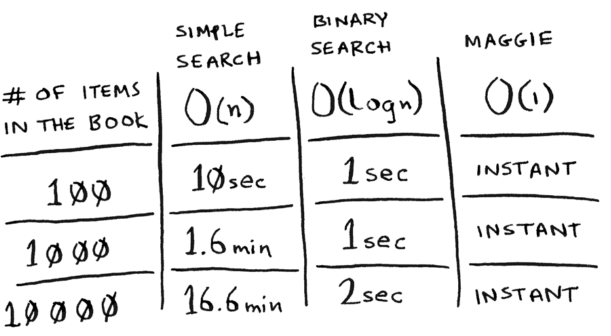 # OF ITEMS IN THE BOOK | SIMPLE SEARCH O(n) | BINARY SEARCH O(log n) | MAGGIE O(1)
100 | 10 sec | 1 sec | INSTANT
1000 | 1.6 min | 1 sec | INSTANT
10000 | 16.6 min | 2 sec | INSTANT